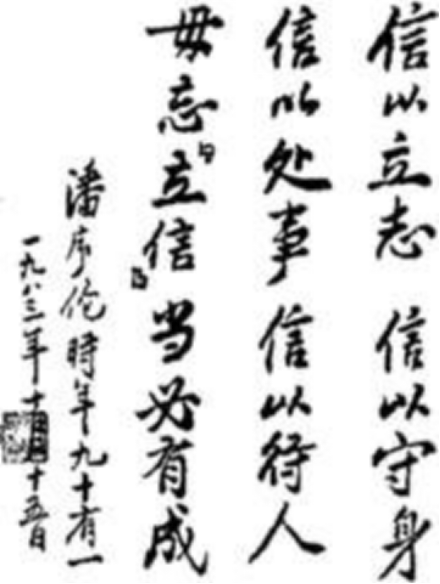 信以立志 信以守身
信以处事 信以待人
毋忘「立信」当必有成
潘序伦時年九十有一
一九八三年十月十五日